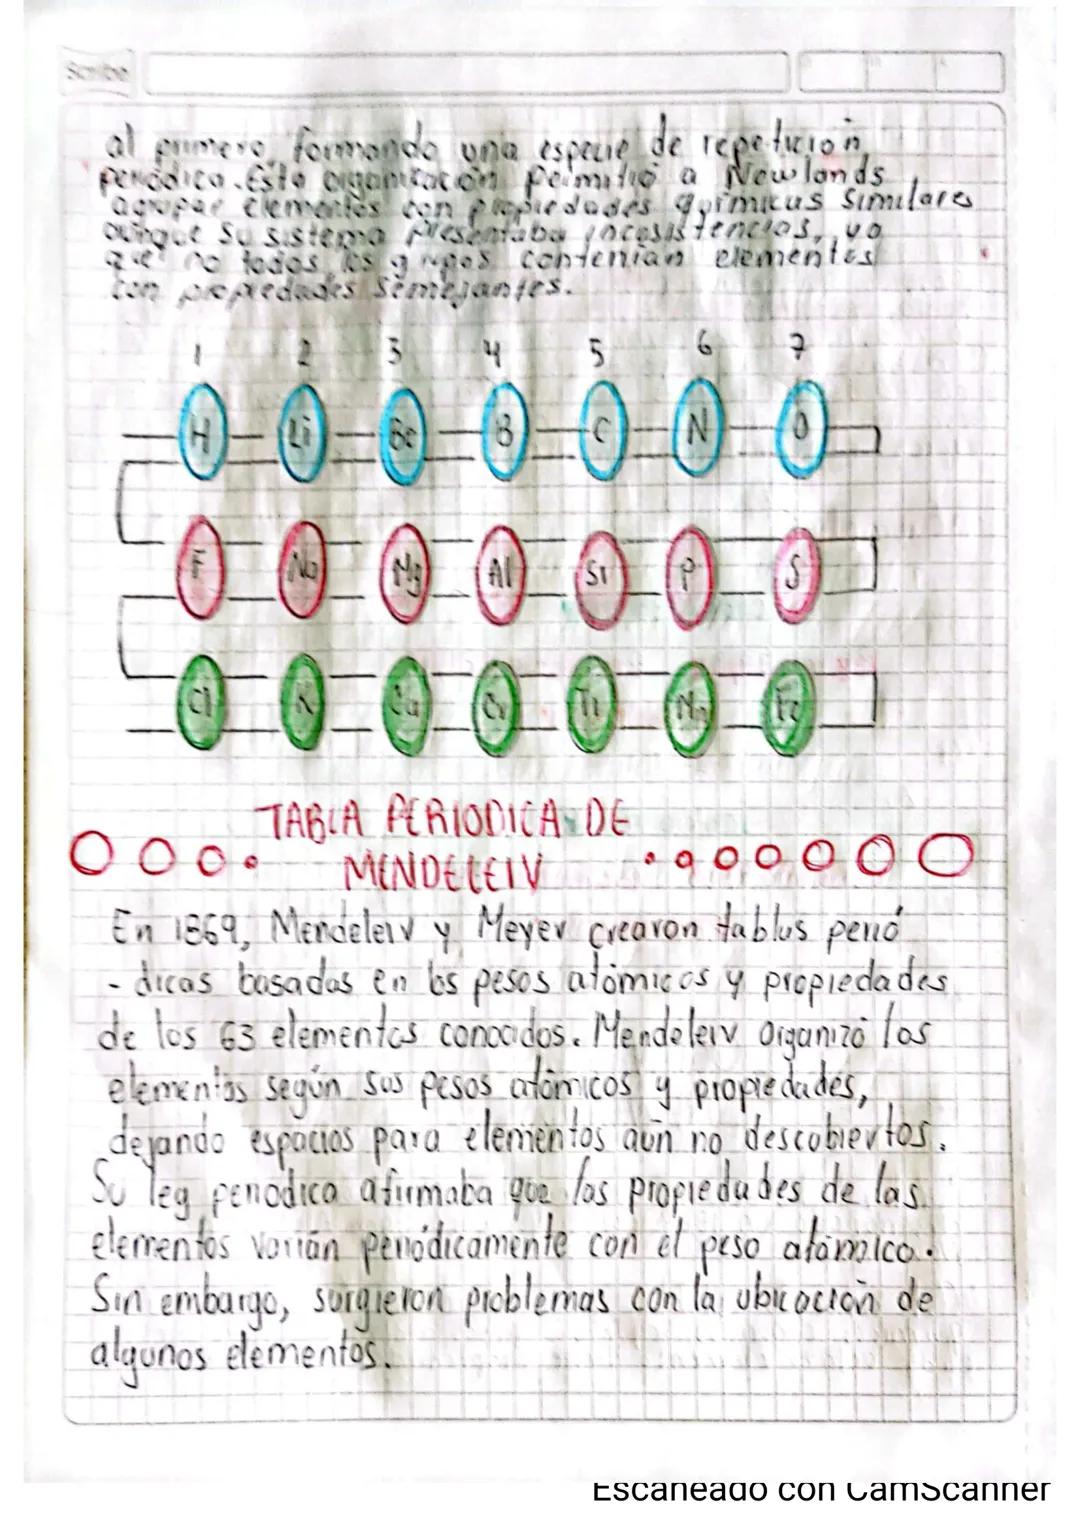 Scribe
al primero, formando una especie de repetición
periódica. Esta organización permitió a Newlands
agrupar elementos con propiedades químicas similares
aunque su sistema presentaba incosistencias, ya
que no todos los grupos contenían elementos
con propiedades semejantes.
1 2 3 4 5 6 7
H Li Be B C N O
F Na Mg Al Si P S
Cl K Ca Cr Ti Mn Fe
TABLA PERIODICA DE
MENDELEIV
En 1869, Mendeleiv y Meyer crearon tablas perió
- dicas basadas en los pesos atómicos y propiedades
de los 63 elementos conocidos. Mendeleiv organizó los
elementos según sus pesos atómicos y propiedades,
dejando espacios para elementos aún no descubiertos.
Su ley periodica afirmaba que las propiedades de las
elementos varían periódicamente con el peso atómico.
Sin embargo, surgieron problemas con la ubicación de
algunos elementos.
Escaneado con CamScanner